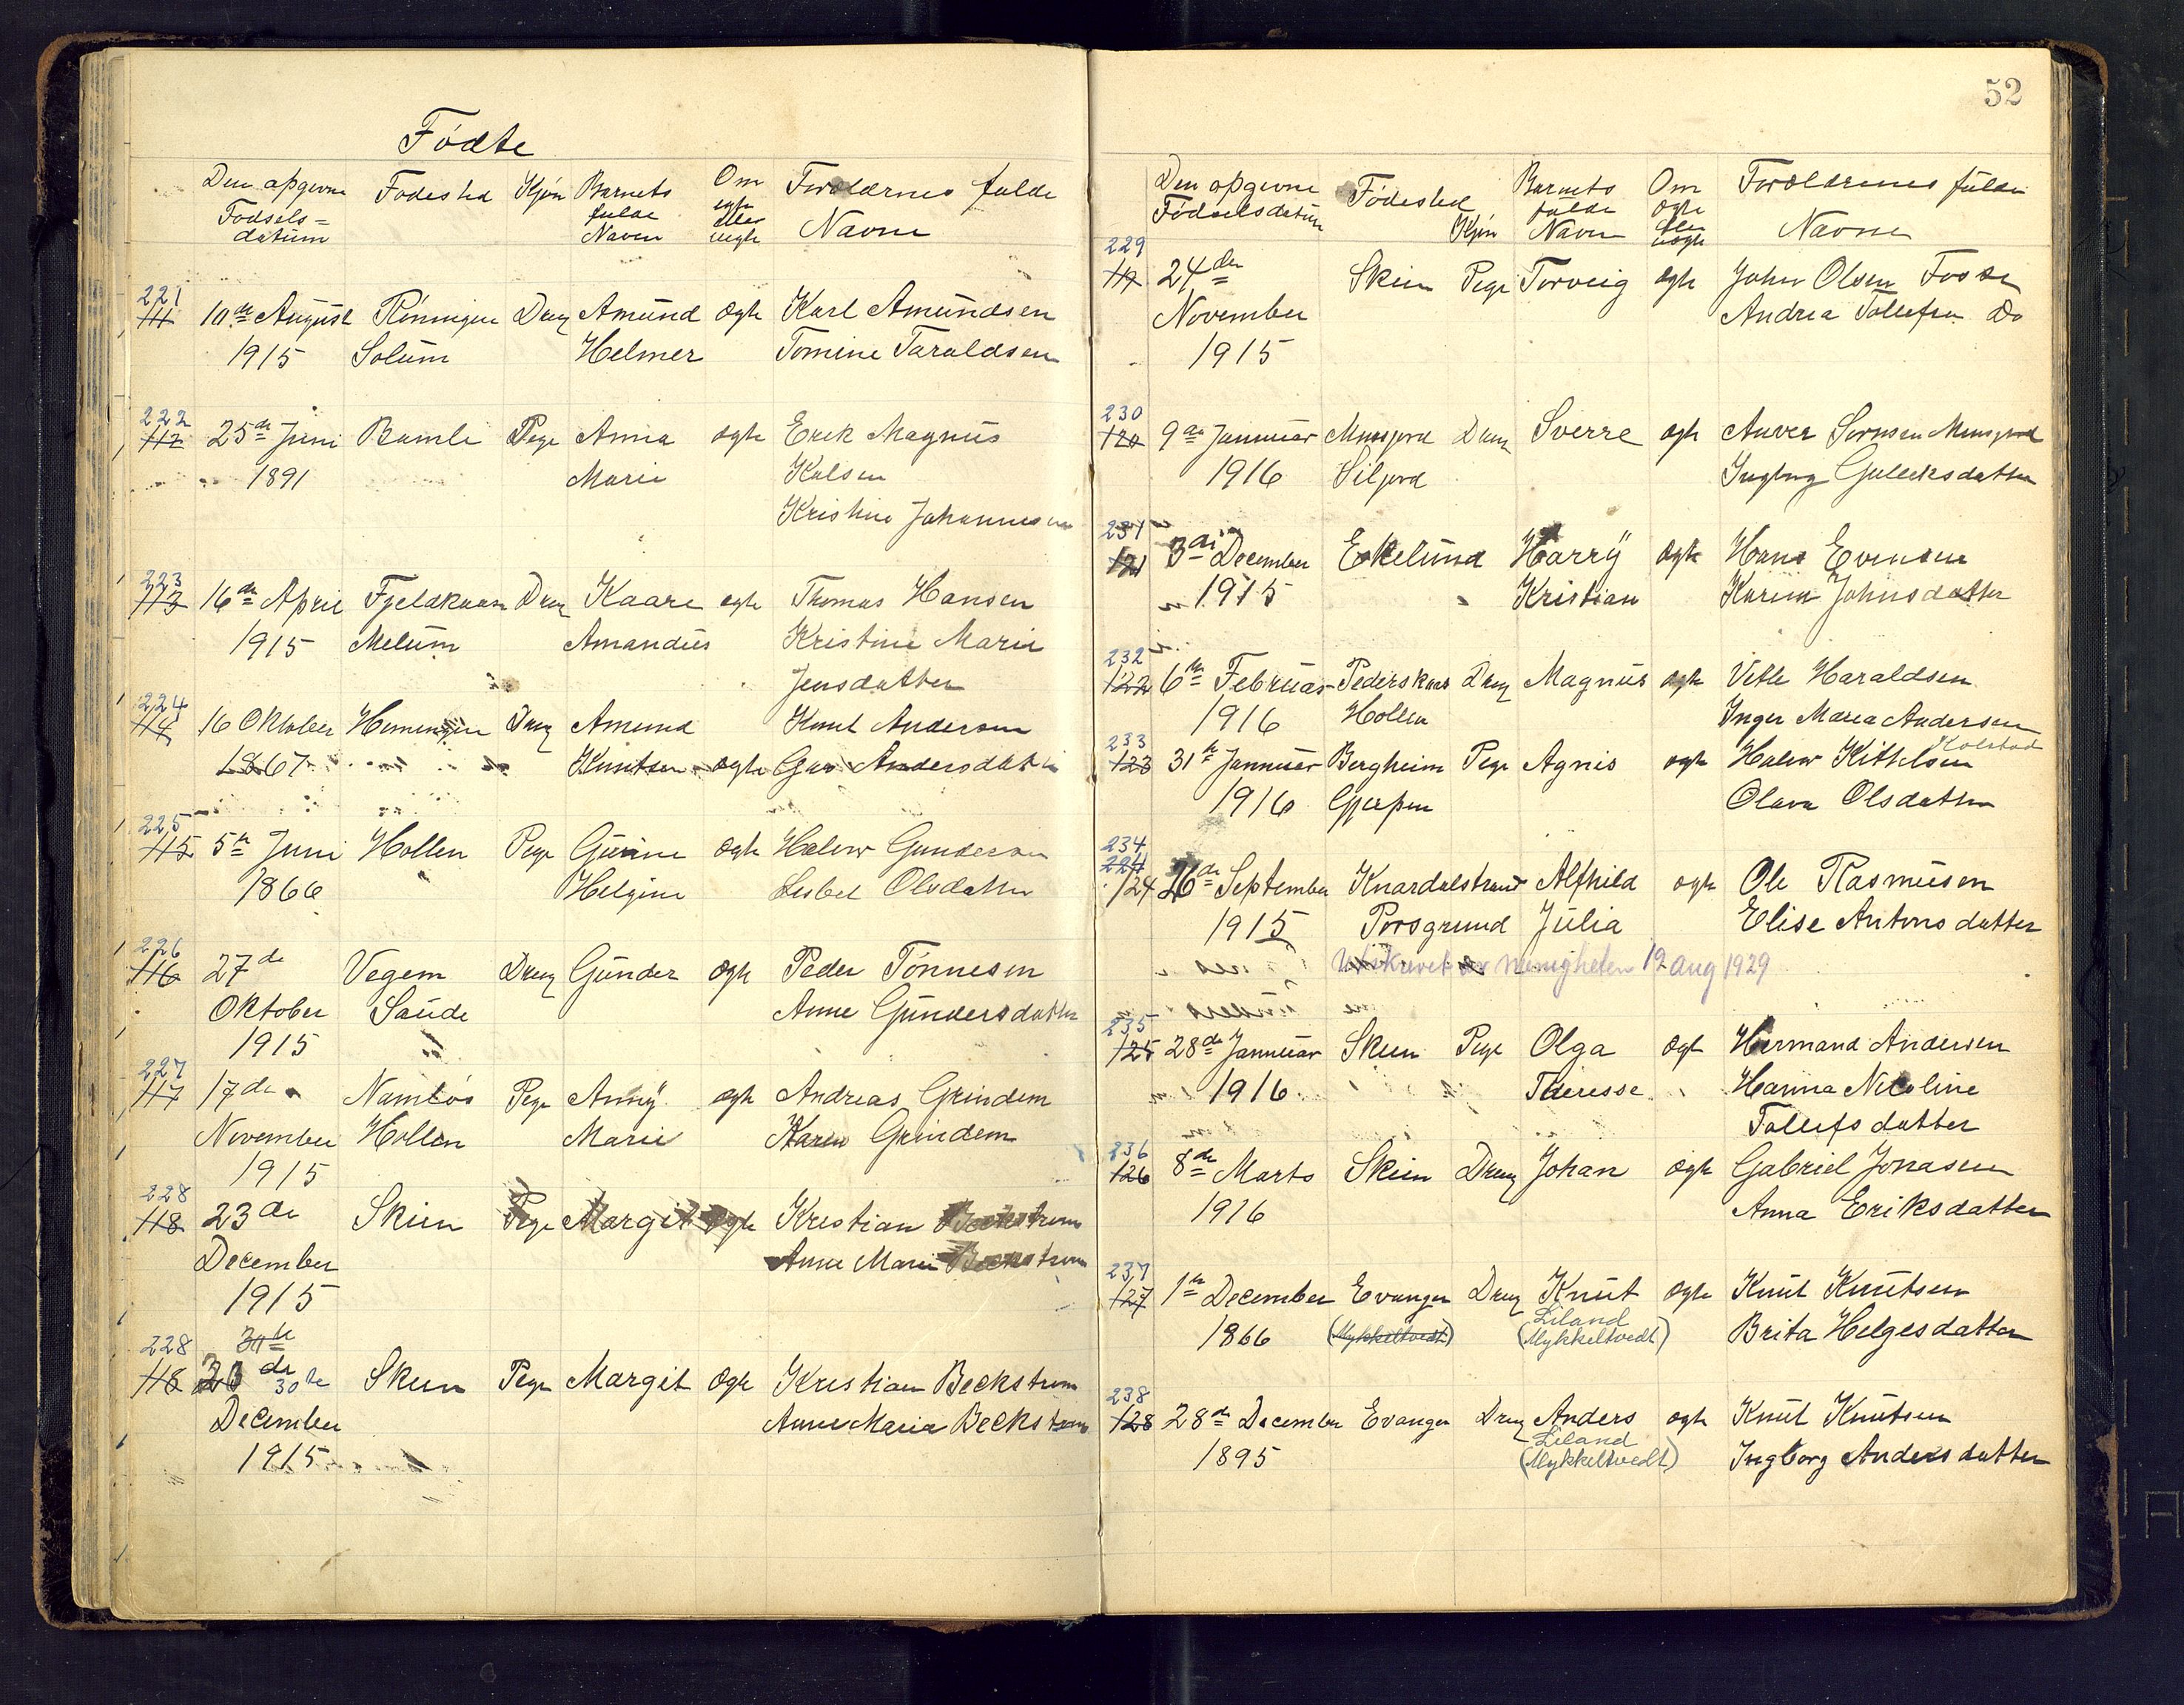 Fødte
Den opgivne Fødested Kjøn Barnets Om Forældrenes fulde
Fødsels= fulde egte Navne
datum Navn eller uegte
221
111 10de August Rönningen Dreng Amund ægte Karl Amundsen
1915 Solum Helmer Tomine Taraldsen
222
112 25de Juni Bamle Pige Anna ægte Erik Magnus
1891 Marie Kolsen
Kristine Johannesen
223
113 16de April Fjeldkaasa Dreng Kaare ægte Thomas Hansen
1915 Melum Amandus Kristine Marie
Jensdatter
224
114 16 Oktober Dreng Amund Knut Andersen
1867 Knutsen ægte Andersdatter
225
115 5te Juni Hollen Pige Gurine ægte Halvor Gundersen
1866 Helgine Lisbet Olsdatter
226
116 27de Vegem Dreng Gunder ægte Peder Tönnesen
Oktober Saude Anne Gundersdatter
1915
227
117 17de Namløs Pige Anny ægte Andreas Grindem
November Hollen Marie Karen Grindem
1915
228
118 23de Skien Pige Margit ægte Kristian Beckstrøm
December Anne Marie Beckstrøm
1915
30te
228
118 23de 30te Skien Pige Margit ægte Kristian Beckstrøm
December Anne Maria Beckstrøm
1915
52
Den opgivne Fødested Barnets Om Forældrenes fulde
Fødselsdatum Kjøn fulde Navn ægte eller uægte Navne
229
119 24de Skien Pige Torveig ægte John Olsen Fosse
November Andrea Tollefsen Do
1915
230
120 9de Januar Dreng Sverre ægte Sørensen
1916 Siljord Ingborg Gulleksdatter
231
121 3die December Ekelund Harry ægte Hans Evensen
1915 Kristian Karen Johnsdatter
232
122 6te Februar Pederskaas Dreng Magnus ægte Vetle Haraldsen
1916 Hollen Inger Maria Andersen
233 Kolstad
123 31te Januar Bergheim Pige Agnis ægte Halvor Kittelsen
1916 Gjerpen Olava Olsdatter
234
224
124 26de September Knardalstrand Alfhild ægte Ole Rasmusen
1915 Porsgrund Julia Elise Antonsdatter
Utskrevet av menigheten 19 aug 1929
235
125 28de Januar Skien Pige Olga ægte Hermand Andersen
1916 Theresse Hanna Nicoline
Tollefsdatter
236
126 8de Marts Skien Dreng Johan ægte Gabriel Jonasen
1916 Anna Eriksdatter
237
127 1te December Evanger Dreng Knut ægte Knut Knutsen
Liland
1866 (Mykkeltvedt) (Mykkeltvedt) Brita Helgesdatter
238
128 28de December Evanger Dreng Anders ægte Knut Knutsen
Liland
1895 (Mykkeltvedt) Ingborg Andersdatter